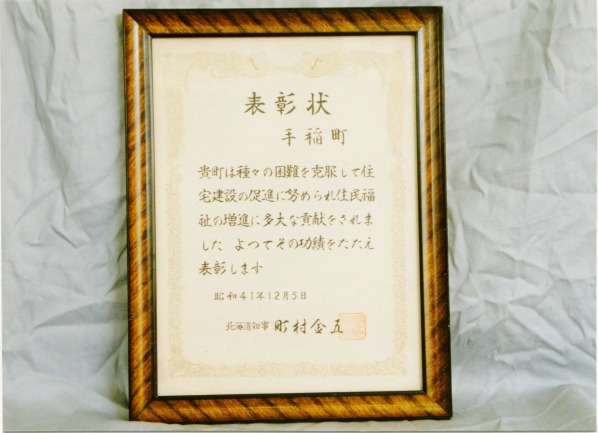 表彰状
手稲町
貴町は種々の困難を克服して住
宅建設の促進に努められ住民福
祉の増進に多大な貢献をされま
した よつてその功績をたたえ
表彰します
昭和41年12月5日
北海道知事 町村金五